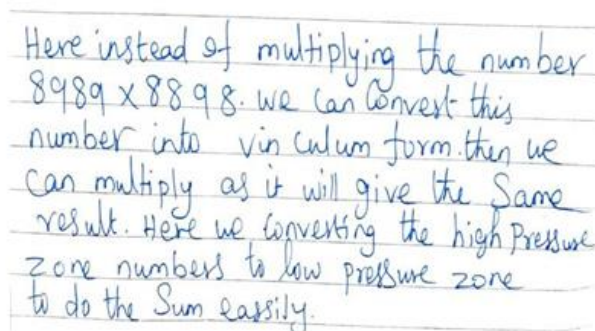 Here instead of multiplying the number
8989 x 8898. we can Convert this
number into vin culum form. then we
can multiply as it will give the Same
result. Here we converting the high Pressure
zone numbers to low pressure zone
to do the Sum eassily.